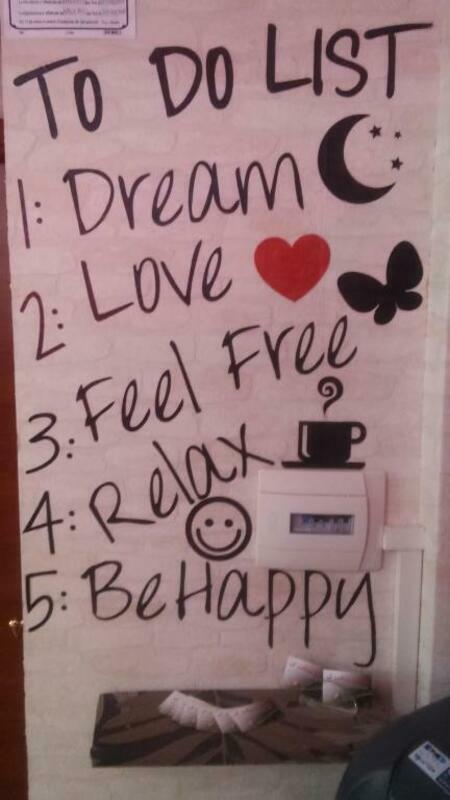 TO DO LIST
1: Dream
2: Love
3: Feel Free
4: Relax
5: Be Happy